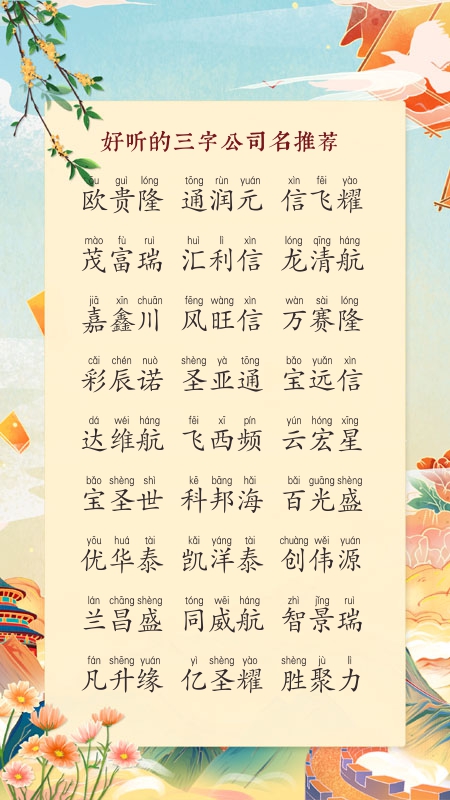 好听的三字公司名推荐
ōu guì lóng tōng rùn yuán xìn fēi yào
欧贵隆 通润元 信飞耀
mào fù ruì huì lì xìn lóng qīng háng
茂富瑞 汇利信 龙清航
jiā xīn chuān fēng wàng xìn wàn sài lóng
嘉鑫川 风旺信 万赛隆
cǎi chén nuò shèng yà tōng bǎo yuǎn xìn
彩辰诺 圣亚通 宝远信
dá wéi háng fēi xī pín yún hóng xīng
达维航 飞西频 云宏星
bǎo shèng shì kē bāng hǎi bǎi guāng shèng
宝圣世 科邦海 百光盛
yōu huá tài kǎi yáng tài chuàng wěi yuán
优华泰 凯洋泰 创伟源
lán chāng shèng tóng wēi háng zhì jǐng ruì
兰昌盛 同威航 智景瑞
fán shēng yuán yì shèng yào shèng jù lì
凡升缘 亿圣耀 胜聚力